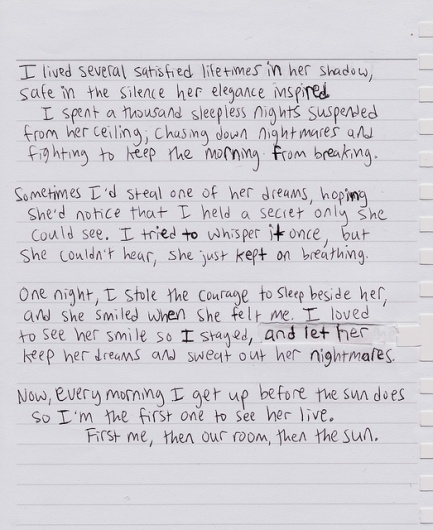 I lived several satisfied lifetimes in her shadow,
safe in the silence her elegance inspired
I spent a thousand sleepless nights suspended
from her ceiling; chasing down nightmares and
fighting to keep the morning from breaking.
Sometimes I'd steal one of her dreams, hoping
she'd notice that I held a secret only she
could see. I tried to whisper it once, but
she couldn't hear, she just kept on breathing.
One night, I stole the courage to sleep beside her,
and she smiled when she felt me. I loved
to see her smile so I stayed, and let her
keep her dreams and sweat out her nightmares.
Now, every morning I get up before the sun does
so I'm the first one to see her live.
First me, then our room, then the sun.